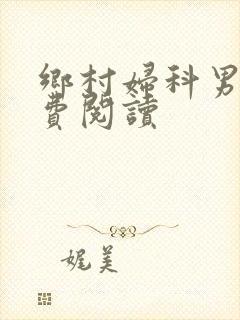 鄉村婦科男
費閱讀
娓美